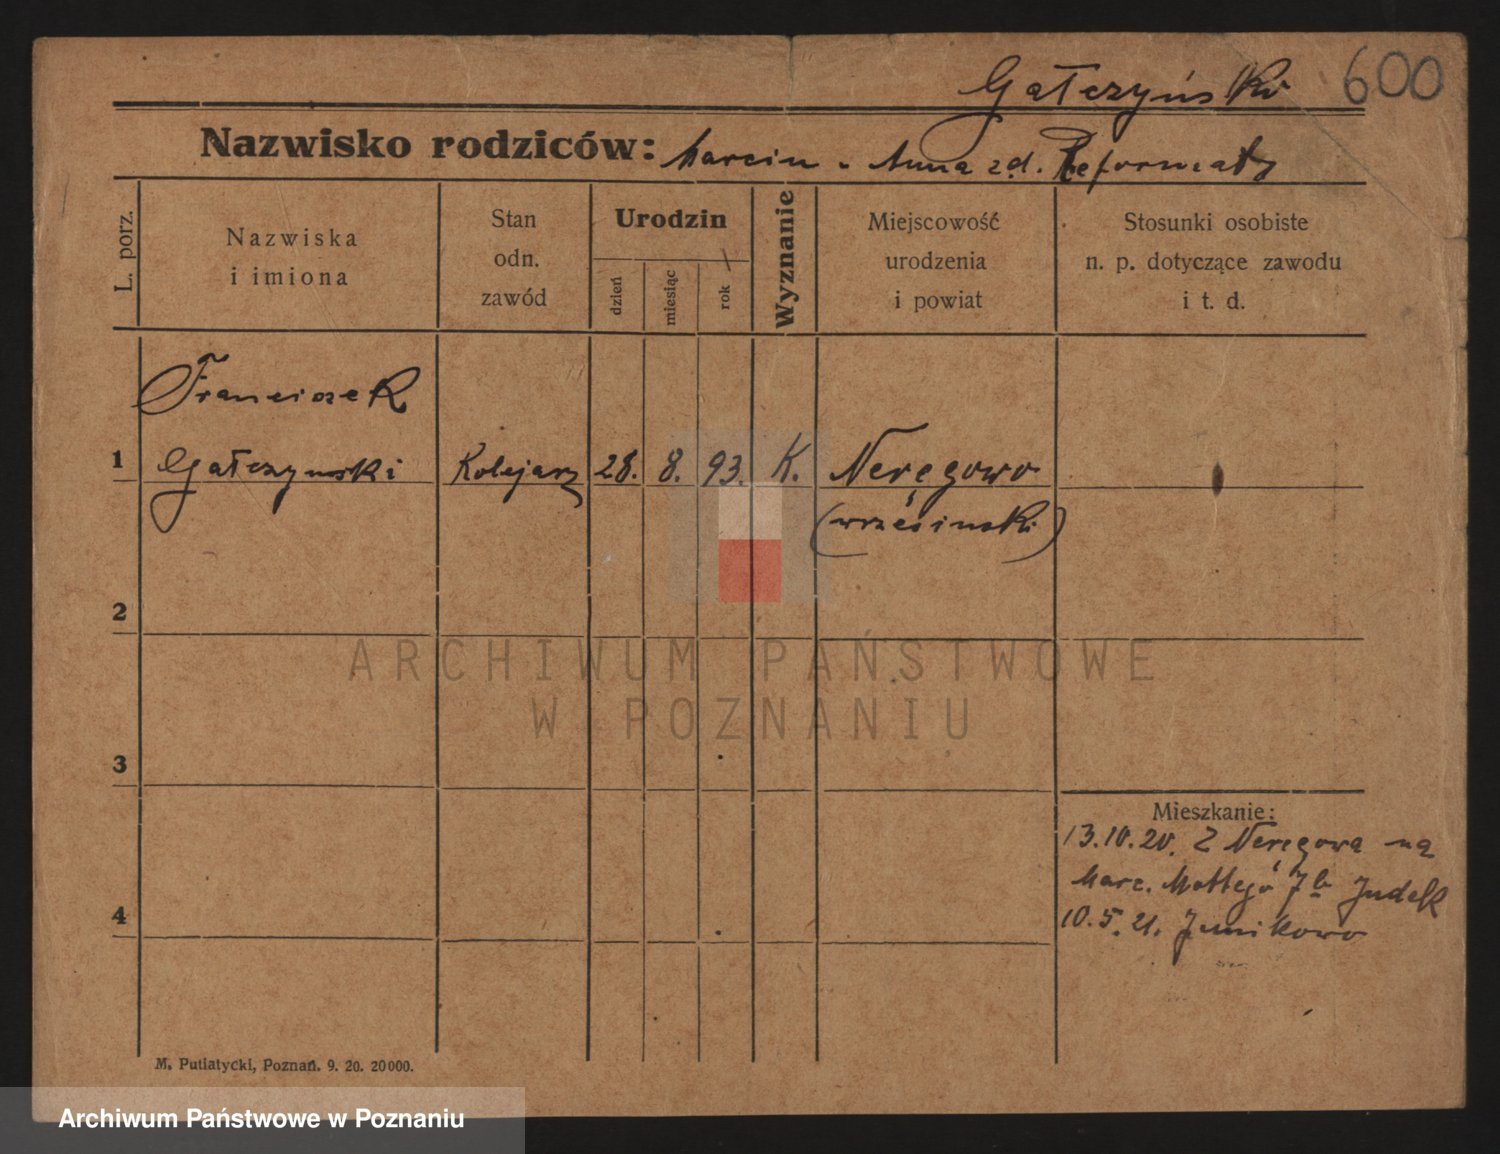 Gałczyński 600
Nazwisko rodziców: Marcin - Anna zd. Reformat
L. porz.
Nazwiska
i imiona
Stan
odn.
zawód
Urodzin
dzień
miesiąc
rok
Wyznanie
Miejscowość
urodzenia
i powiat
Stosunki osobiste
n. p. dotyczące zawodu
i t. d.
Franciszek
1 Gałczynski Kolejarz 28. 8. 93. K. Neręgowo
(wrzésinski)
2
ARCHIWUM PAŃSTWOWE
W POZNANIU
3
Mieszkanie:
13.10.20. Z Neręgowa na
Marc. Mottego 7b Judek
4 10.5.21. Junikowo
M. Putiatycki, Poznań. 9. 20. 20000.
Archiwum Państwowe w Poznaniu